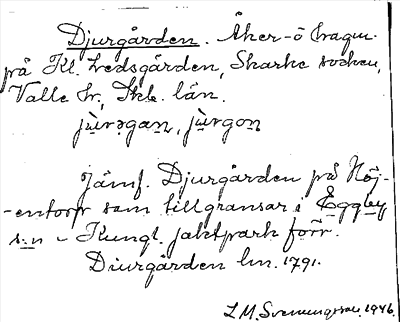 Djurgården. Åker o hagm.
på Kl. Ledsgården, Skarke socken,
Valle hr, Skb. län.
jùrǝgan, jùrgon
Jämf. Djurgården på Höj-
-entorp som tillgränsar i Eggby
s:n - Kungl. jaktpark förr.
Djurgården lm. 1791.
L.M. Svenungsson. 1946.